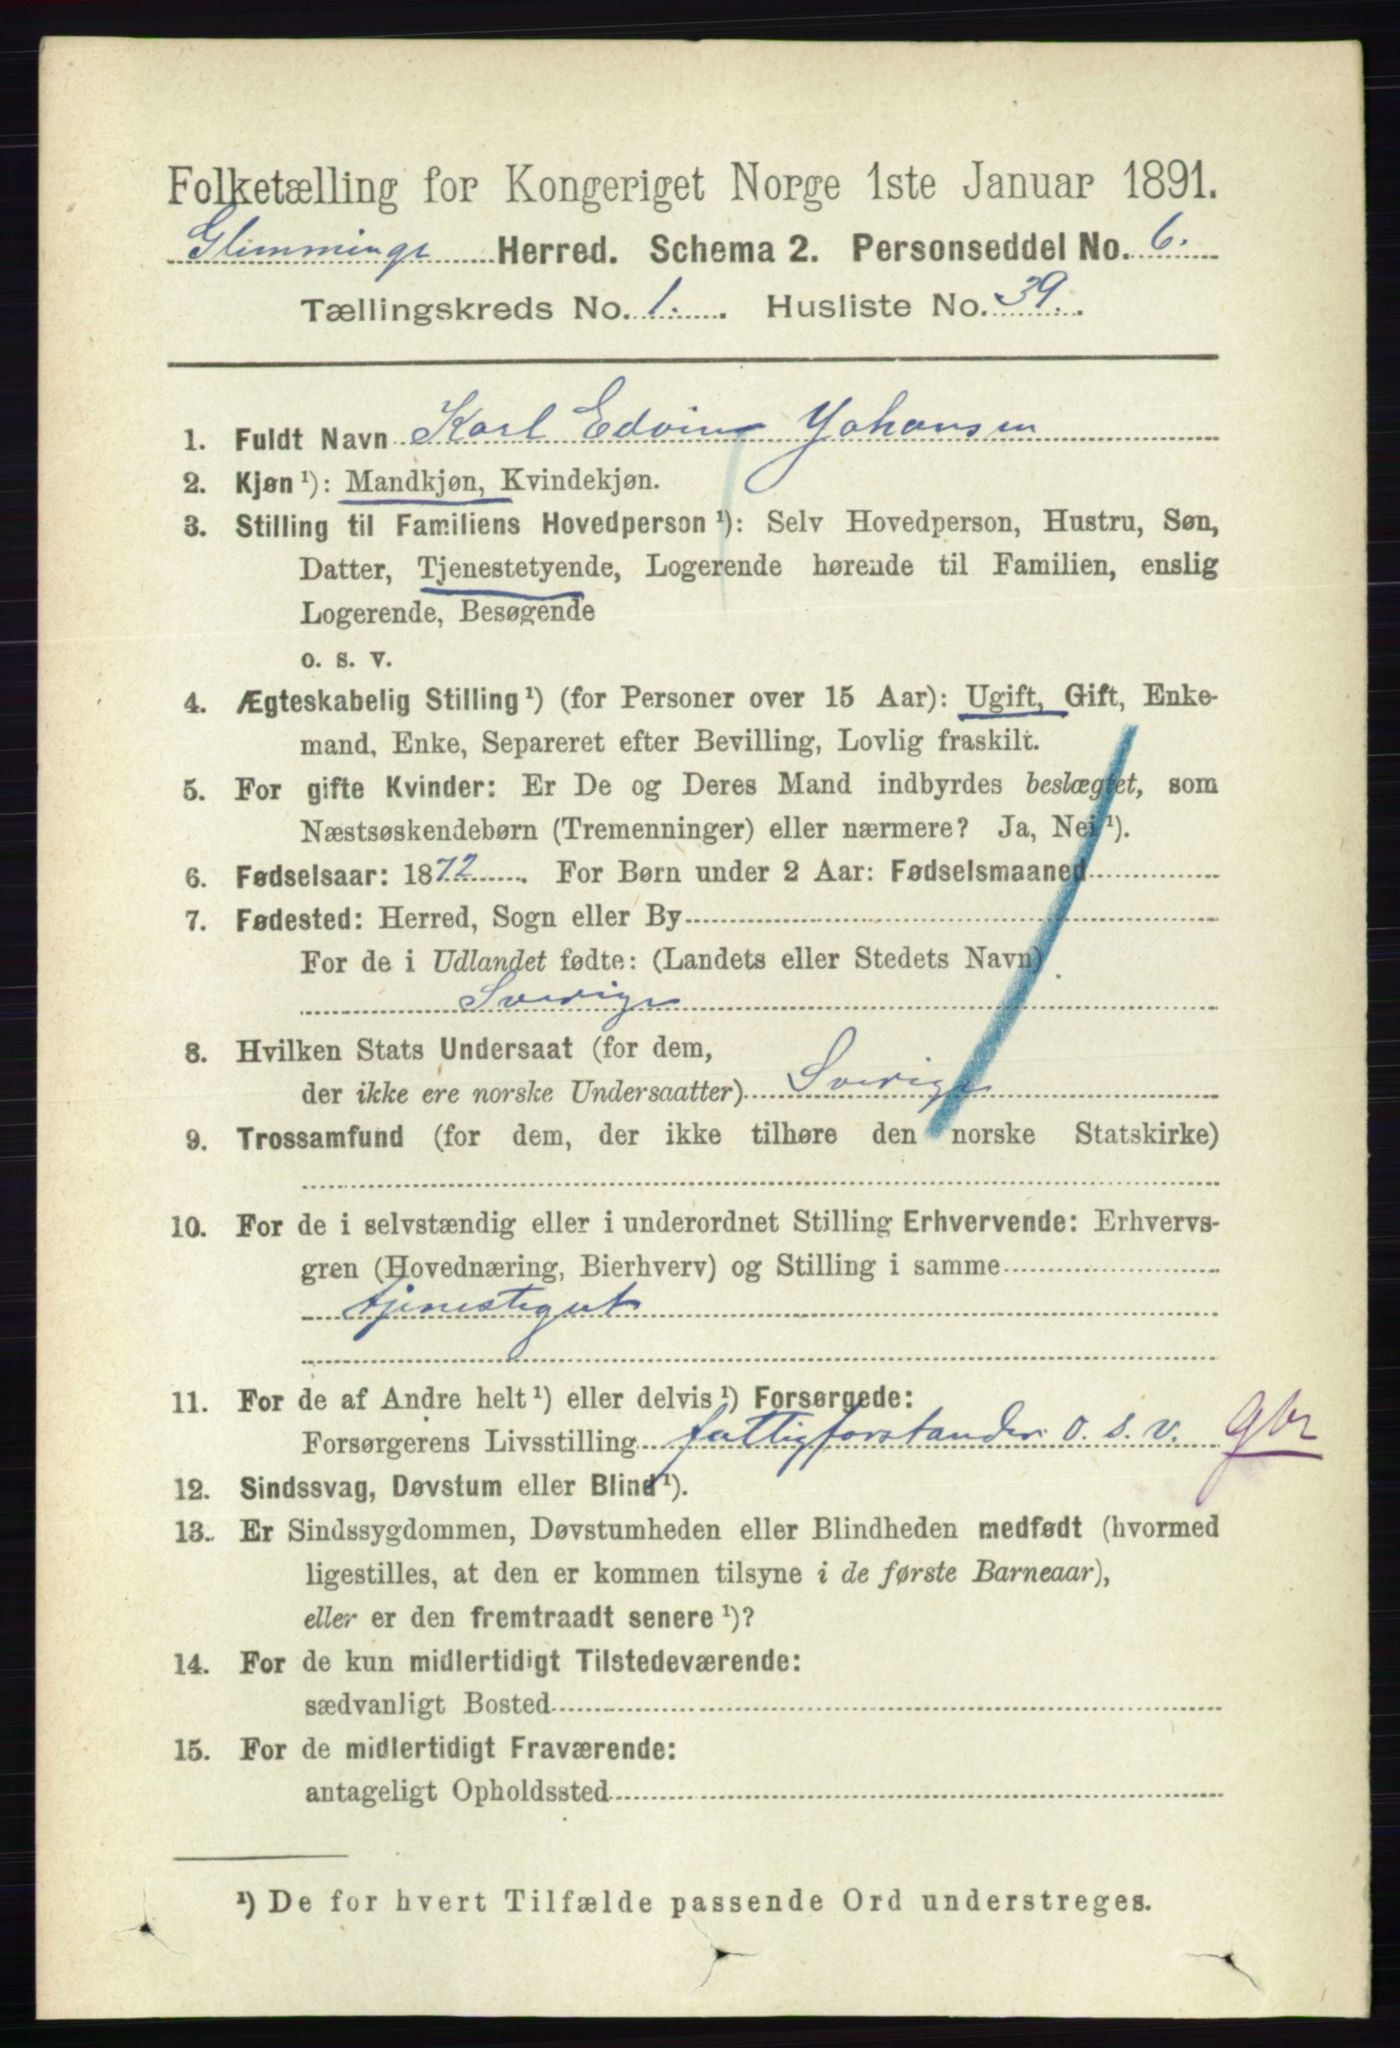 Folketælling for Kongeriget Norge 1ste Januar 1891.
Glemminge Herred. Schema 2. Personseddel No. 6.
Tællingskreds No. 1. Husliste No. 39.
1. Fuldt Navn Karl Edvin Johansen
2. Kjøn ¹): Mandkjøn, Kvindekjøn.
3. Stilling til Familiens Hovedperson ¹): Selv Hovedperson, Hustru, Søn,
Datter, Tjenestetyende, Logerende hørende til Familien, enslig
Logerende, Besøgende
o. s. v.
4. Ægteskabelig Stilling ¹) (for Personer over 15 Aar): Ugift, Gift, Enke-
mand, Enke, Separeret efter Bevilling, Lovlig fraskilt.
5. For gifte Kvinder: Er De og Deres Mand indbyrdes beslægtet, som
Næstsøskendebørn (Tremenninger) eller nærmere? Ja, Nei ¹).
6. Fødselsaar: 1872. For Børn under 2 Aar: Fødselsmaaned
7. Fødested: Herred, Sogn eller By
For de i Udlandet fødte: (Landets eller Stedets Navn)
Sverige
8. Hvilken Stats Undersaat (for dem,
der ikke ere norske Undersaatter) Sverige
9. Trossamfund (for dem, der ikke tilhøre den norske Statskirke)
10. For de i selvstændig eller i underordnet Stilling Erhvervende: Erhvervs-
gren (Hovednæring, Bierhverv) og Stilling i samme
tjenestegut
11. For de af Andre helt ¹) eller delvis ¹) Forsørgede:
Forsørgerens Livsstilling fattigforstander o. s. v. gbr
12. Sindssvag, Døvstum eller Blind ¹).
13. Er Sindssygdommen, Døvstumheden eller Blindheden medfødt (hvormed
ligestilles, at den er kommen tilsyne i de første Barneaar),
eller er den fremtraadt senere ¹)?
14. For de kun midlertidigt Tilstedeværende:
sædvanligt Bosted
15. For de midlertidigt Fraværende:
antageligt Opholdssted
¹) De for hvert Tilfælde passende Ord understreges.